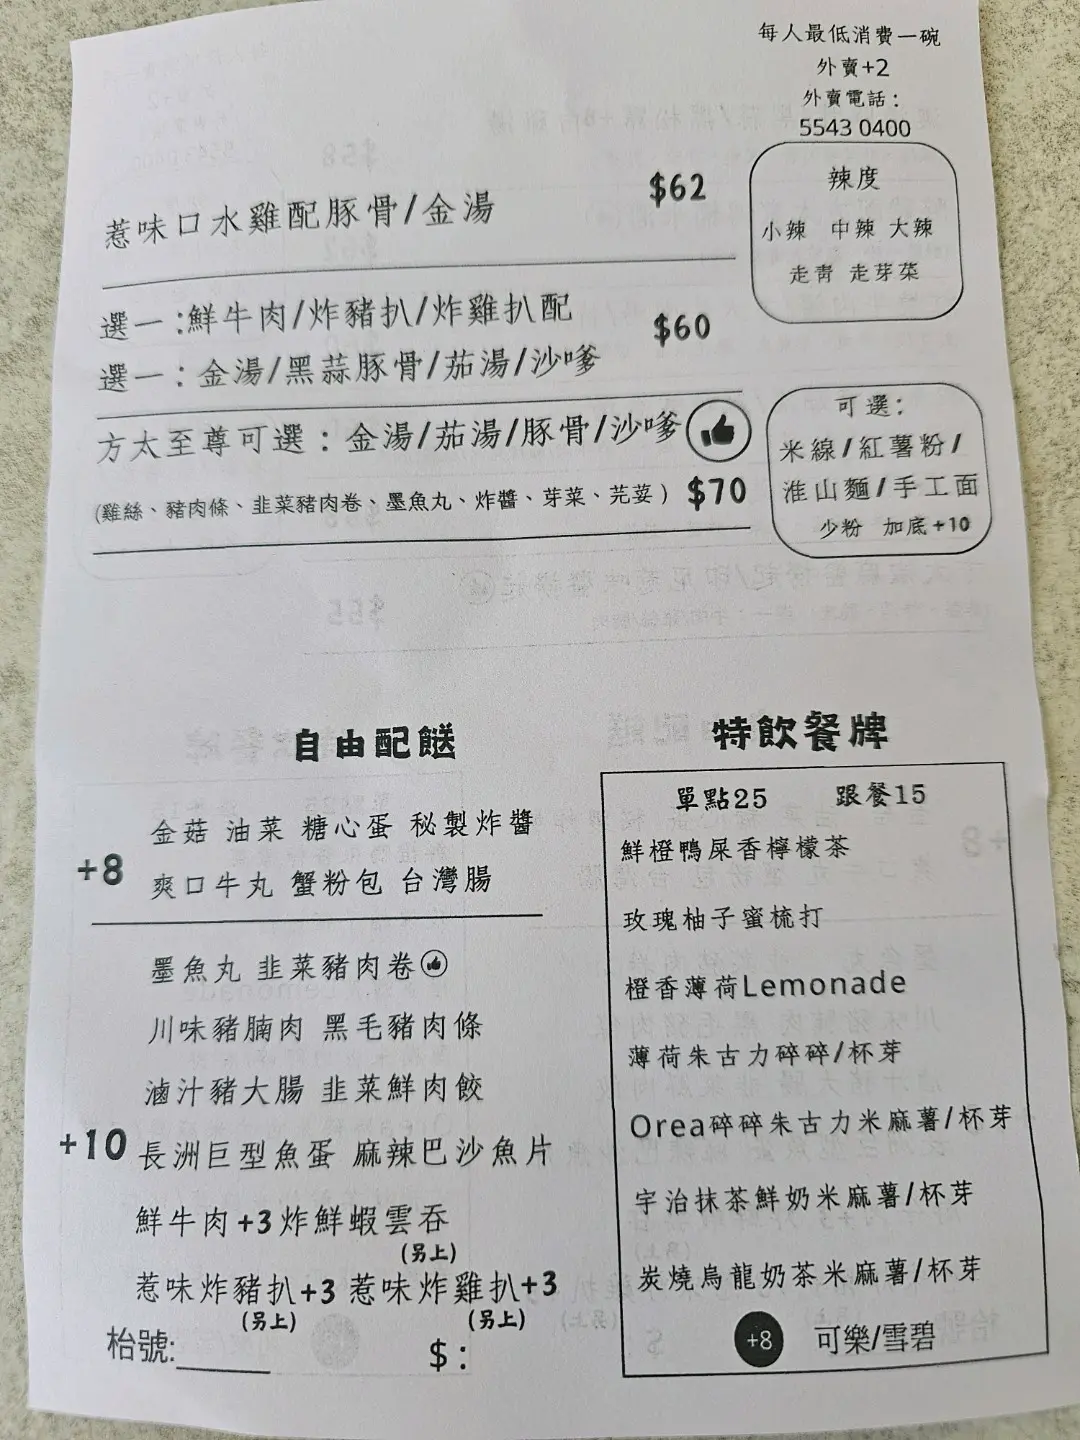 每人最低消費一碗
外賣+2
外賣電話：
5543 0400
惹味口水雞配豚骨/金湯 $62
辣度
小辣 中辣 大辣
走青 走芽菜
選一:鮮牛肉/炸豬扒/炸雞扒配
選一：金湯/黑蒜豚骨/茄湯/沙嗲
$60
方太至尊可選：金湯/茄湯/豚骨/沙嗲
(雞絲、豬肉條、韭菜豬肉卷、墨魚丸、炸醬、芽菜、芫荽) $70
可選：
米線/紅薯粉/
淮山麵/手工面
少粉 加底+10
自由配餸
+8
金菇 油菜 糖心蛋 秘製炸醬
爽口牛丸 蟹粉包 台灣腸
+10
墨魚丸 韭菜豬肉卷
川味豬腩肉 黑毛豬肉條
滷汁豬大腸 韭菜鮮肉餃
長洲巨型魚蛋 麻辣巴沙魚片
鮮牛肉+3 炸鮮蝦雲吞
(另上)
惹味炸豬扒+3 惹味炸雞扒+3
(另上) (另上)
枱號: $：
特飲餐牌
單點25 跟餐15
鮮橙鴨屎香檸檬茶
玫瑰柚子蜜梳打
橙香薄荷Lemonade
薄荷朱古力碎碎/杯芽
Orea碎碎朱古力米麻薯/杯芽
宇治抹茶鮮奶米麻薯/杯芽
炭燒烏龍奶茶米麻薯/杯芽
+8 可樂/雪碧